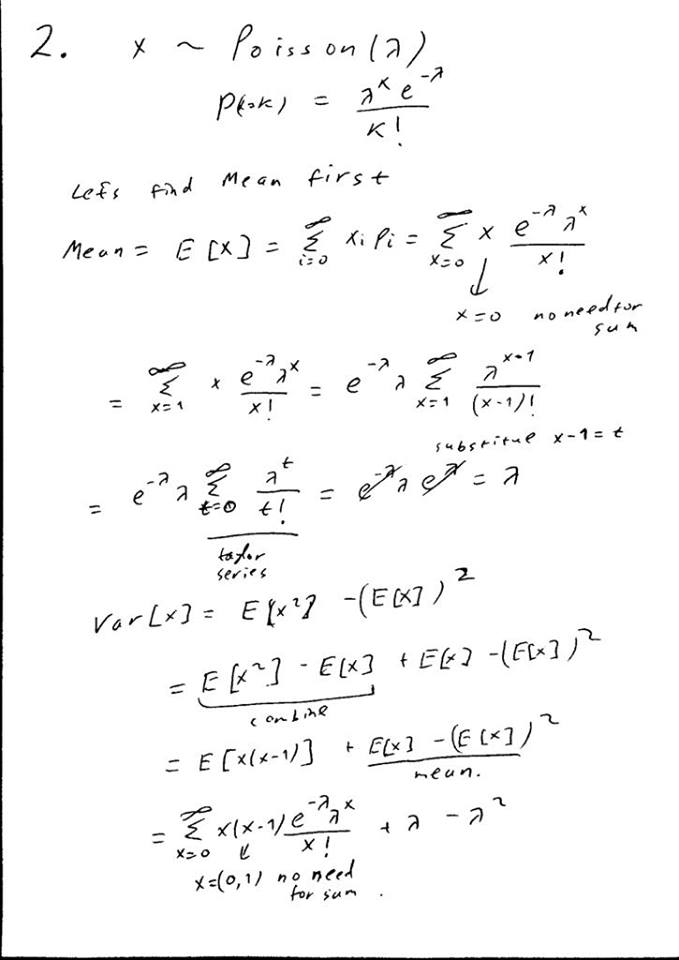 2. x ~ Poisson(λ)
P(x=k) = λ^k e^-λ / k!
Let's find Mean first
Mean = E[X] = ∞Σi=0 xi Pi = ∞Σx=0 x e^-λ λ^x / x!
↓
x=0 no need for
sum
= ∞Σx=1 x e^-λ λ^x / x! = e^-λ λ ∞Σx=1 λ^x-1 / (x-1)!
substitue x-1=t
= e^-λ λ ∞Σt=0 λ^t / t! = e^-λ λ e^λ = λ
taylor
series
Var[x] = E[x²] -(E[X])²
= E[x²] - E[x] + E[x] -(E[x])²
combine
= E[x(x-1)] + E[x] -(E[x])²
mean.
= ∞Σx=0 x(x-1) e^-λ λ^x / x! + λ - λ²
↓
x=(0,1) no need
for sum.